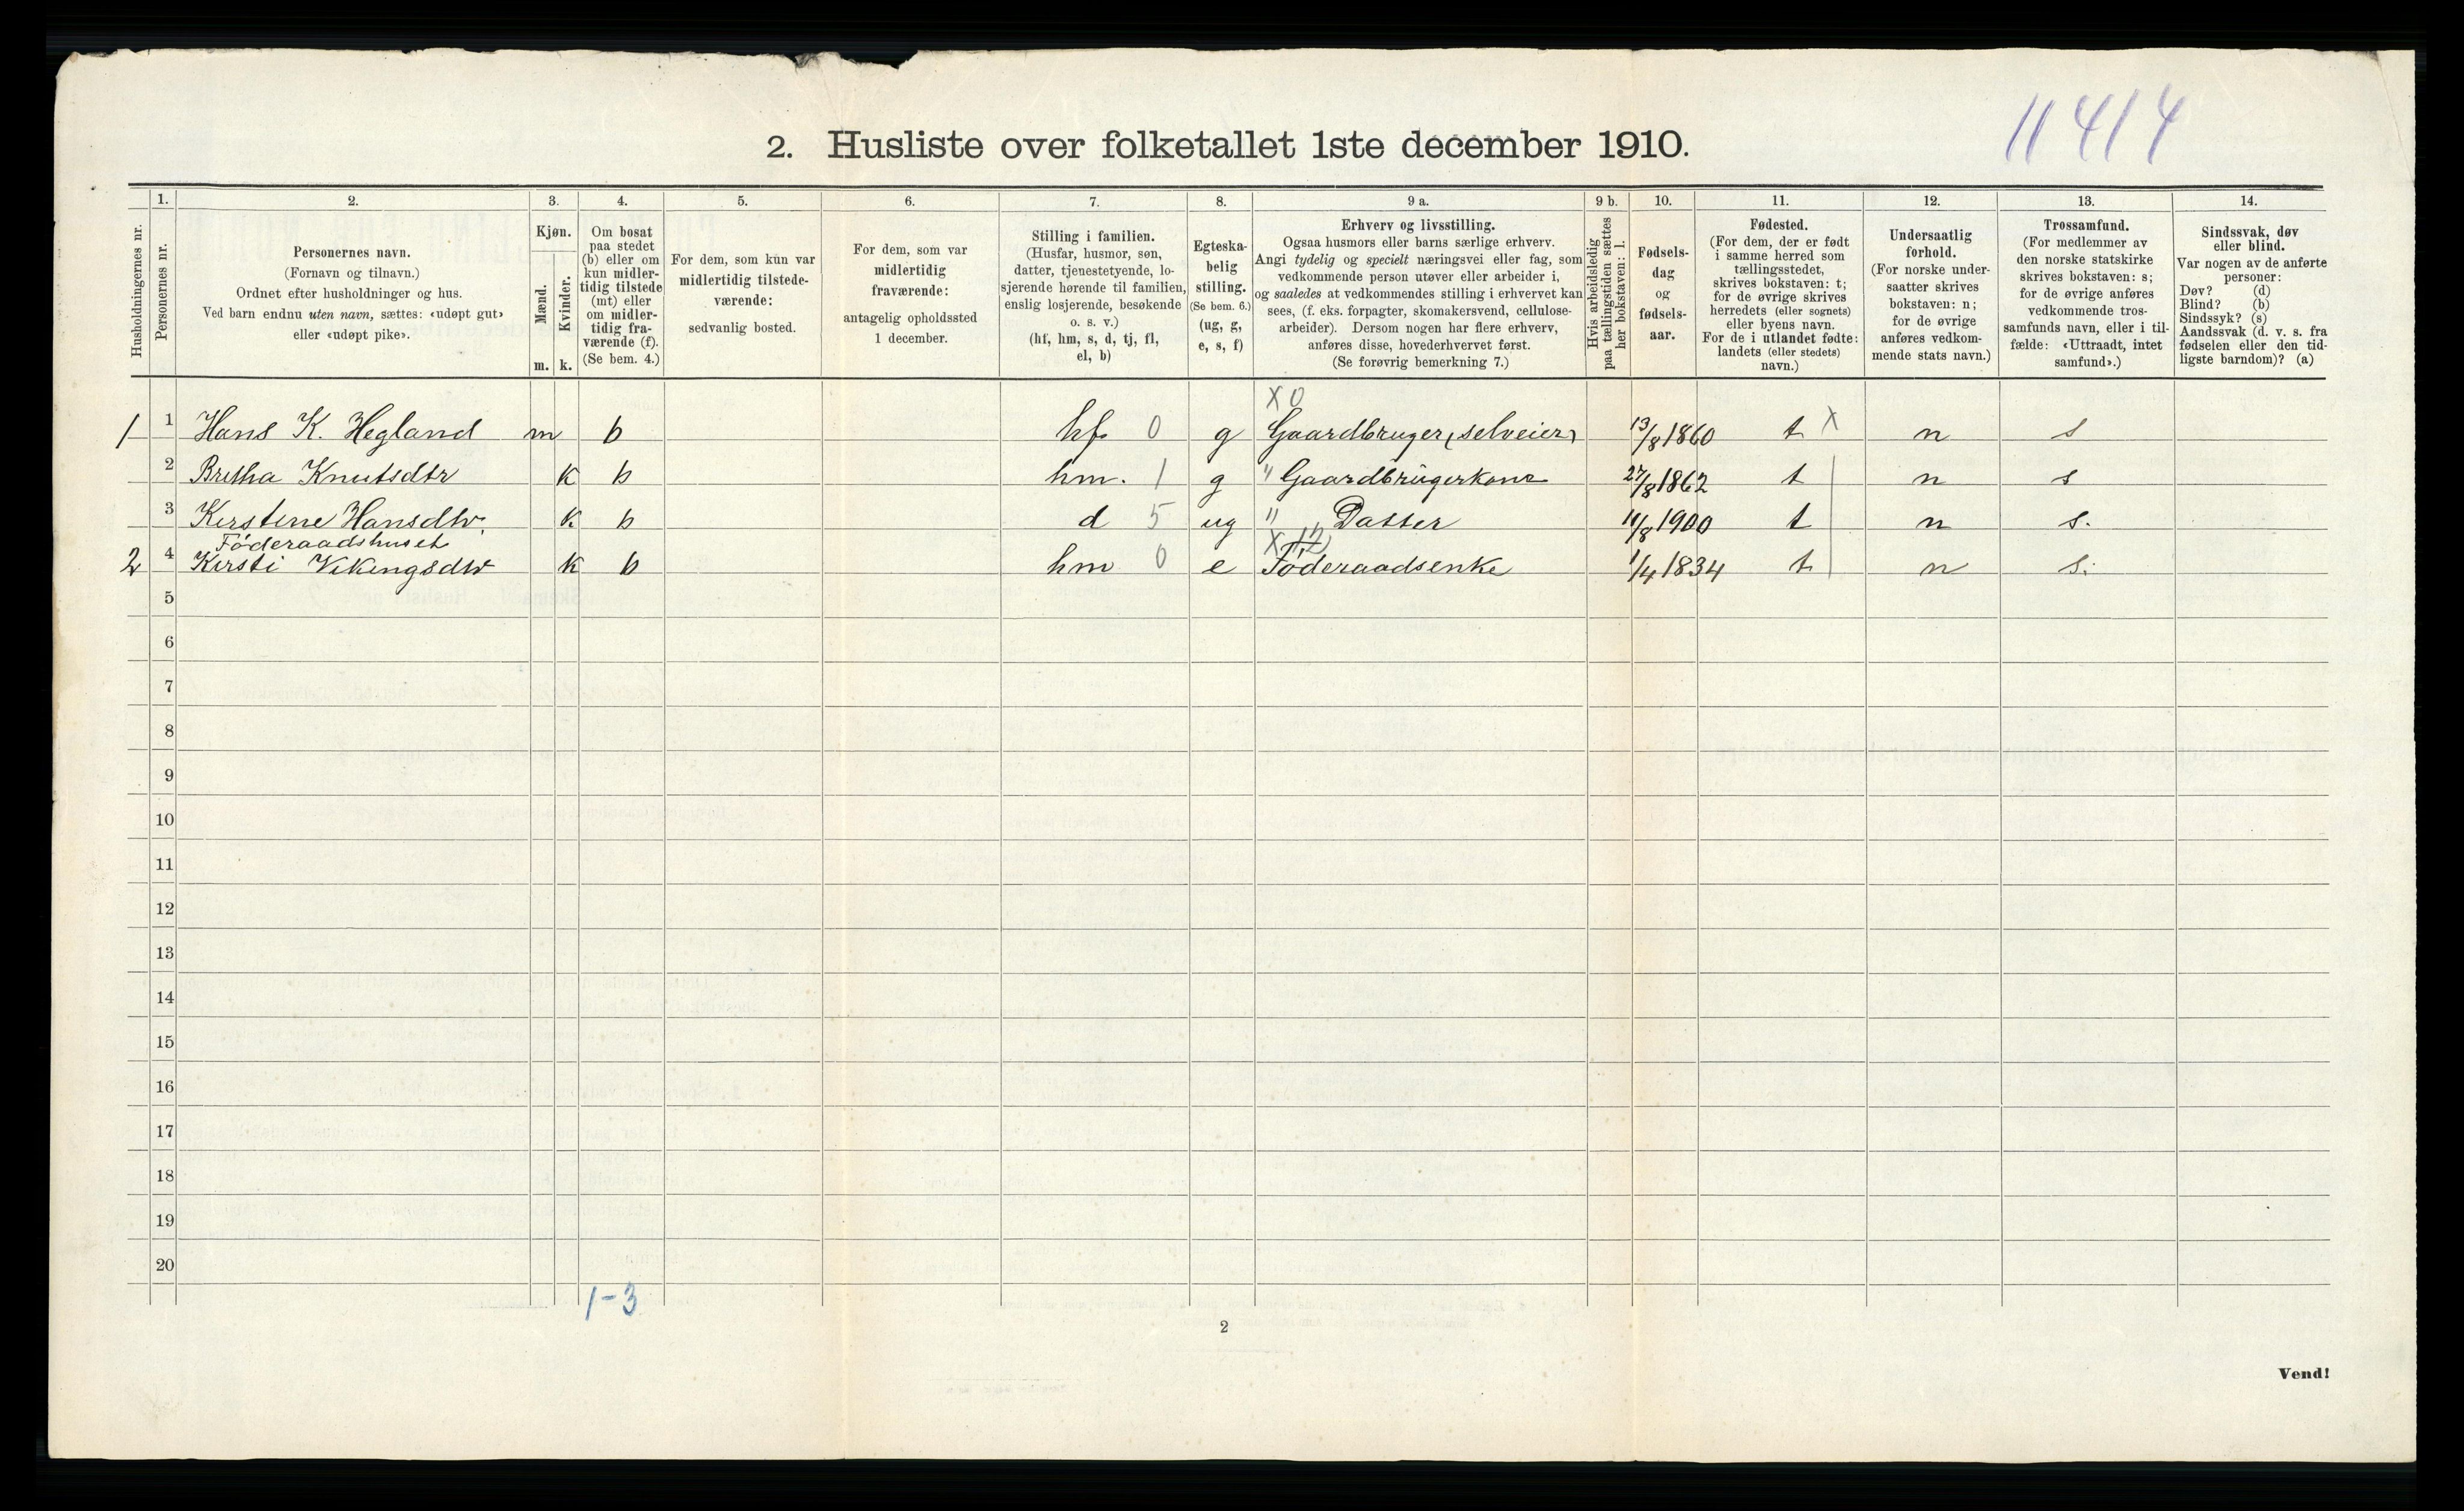 11414
2. Husliste over folketallet 1ste december 1910.
1. 2. 3. 4. 5. 6. 7. 8. 9 a. 9 b. 10. 11. 12. 13. 14.
Husholdningernes nr.
Personernes nr.
Personernes navn.
(Fornavn og tilnavn.)
Ordnet efter husholdninger og hus.
Ved barn endnu uten navn, sættes: «udøpt gut»
eller «udøpt pike».
Kjøn.
Mænd.
Kvinder.
m. k.
Om bosat
paa stedet
(b) eller om
kun midler-
tidig tilstede
(mt) eller
om midler-
tidig fra-
værende (f).
(Se bem. 4.)
For dem, som kun var
midlertidig tilstede-
værende:
sedvanlig bosted.
For dem, som var
midlertidig
fraværende:
antagelig opholdssted
1 december.
Stilling i familien.
(Husfar, husmor, søn,
datter, tjenestetyende, lo-
sjerende hørende til familien,
enslig losjerende, besøkende
o. s. v.)
(hf, hm, s, d, tj, fl,
el, b)
Egteska-
belig
stilling.
(Se bem. 6.)
(ug, g,
e, s, f)
Erhverv og livsstilling.
Ogsaa husmors eller barns særlige erhverv.
Angi tydelig og specielt næringsvei eller fag, som
vedkommende person utøver eller arbeider i,
og saaledes at vedkommendes stilling i erhvervet kan
sees, (f. eks. forpagter, skomakersvend, cellulose-
arbeider). Dersom nogen har flere erhverv,
anføres disse, hovederhvervet først.
(Se forøvrig bemerkning 7.)
Hvis arbeidsledig
paa tællingstiden sættes
her bokstaven: l.
Fødsels-
dag
og
fødsels-
aar.
Fødested.
(For dem, der er født
i samme herred som
tællingsstedet,
skrives bokstaven: t;
for de øvrige skrives
herredets (eller sognets)
eller byens navn.
For de i utlandet fødte:
landets (eller stedets)
navn.)
Undersaatlig
forhold.
(For norske under-
saatter skrives
bokstaven: n;
for de øvrige
anføres vedkom-
mende stats navn.)
Trossamfund.
(For medlemmer av
den norske statskirke
skrives bokstaven: s;
for de øvrige anføres
vedkommende tros-
samfunds navn, eller i til-
fælde: «Uttraadt, intet
samfund».)
Sindssvak, døv
eller blind.
Var nogen av de anførte
personer:
Døv? (d)
Blind? (b)
Sindssyk? (s)
Aandssvak (d. v. s. fra
fødselen eller den tid-
ligste barndom)? (a)
X 0
1 1 Hans K. Hegland m b hf 0 g Gaardbruger (selveier) 13/8 1860 t X n s
2 Britha Knutsdtr k b hm. 1 g " Gaardbrugerkone 27/8 1862 t n s
3 Kirstine Hansdtr. k b d 5 ug " Datter 11/8 1900 t n s.
Föderaadshuset X 12
2 4 Kirsti Vikingsdtr k b hm 0 e Föderaadsenke 1/4 1834 t n s.
5
6
7
8
9
10
11
12
13
14
15
16
17
18
19
20
1-3
2
Vend!